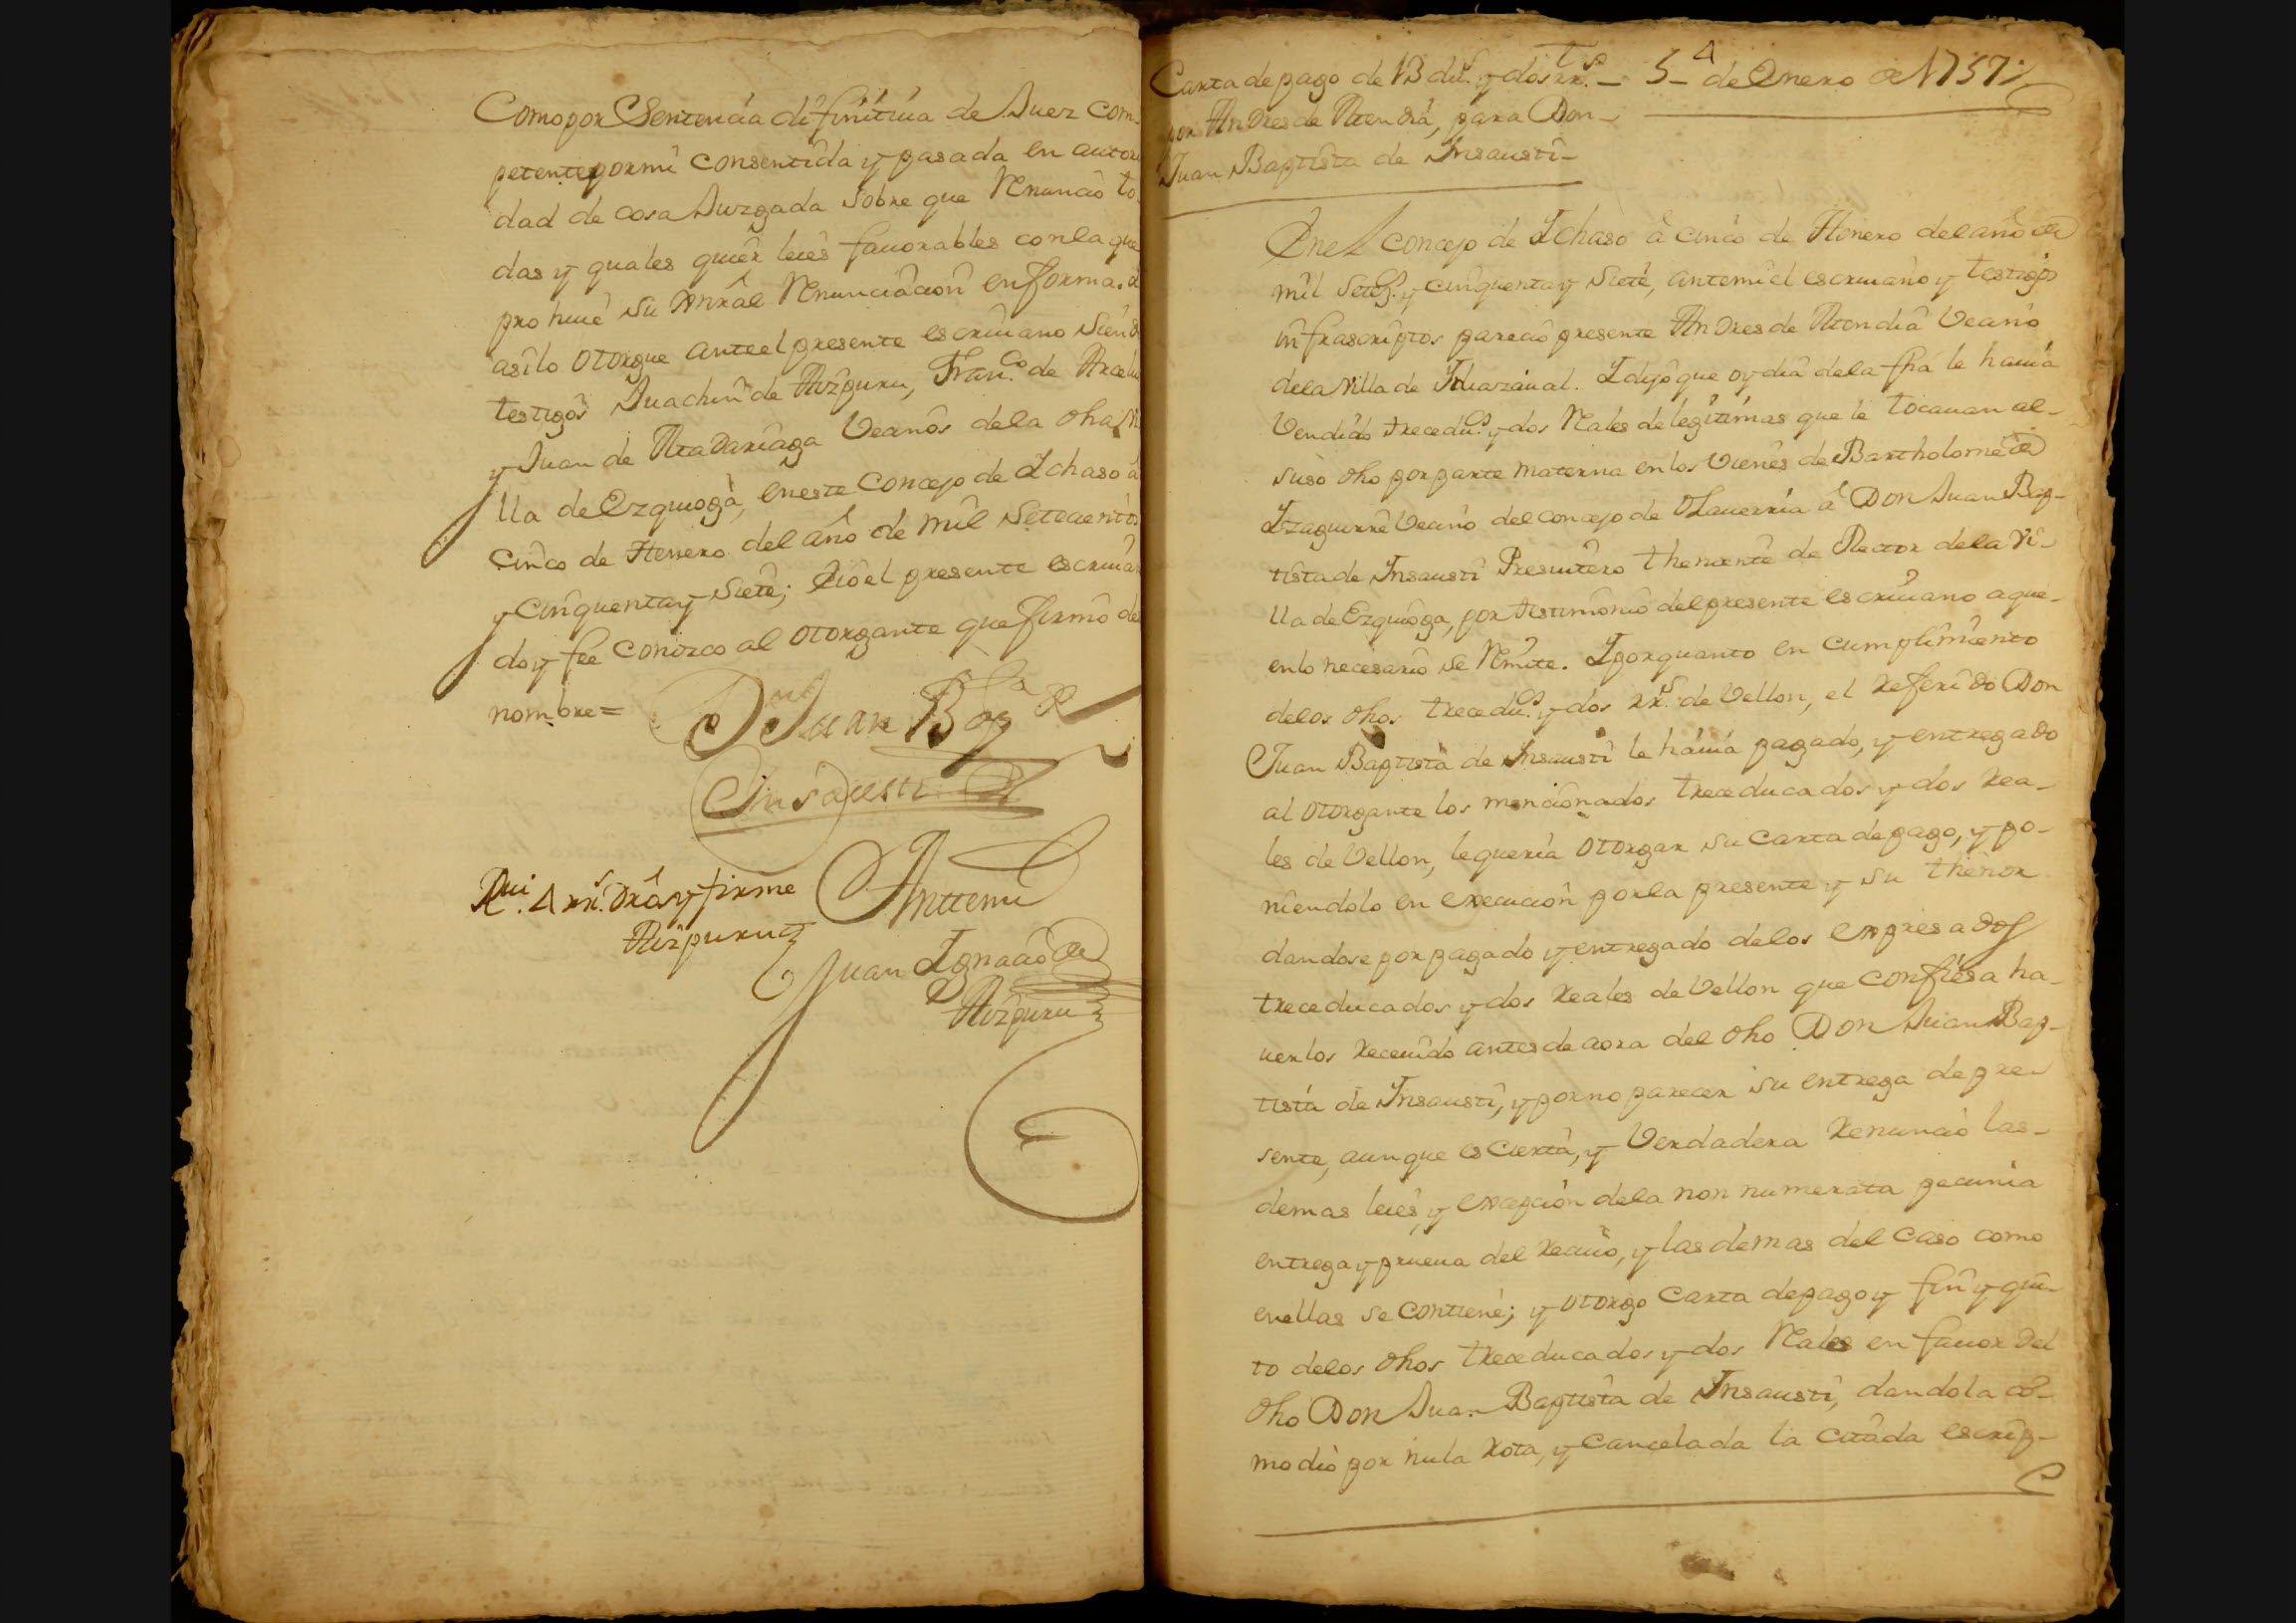 Como por Sentencia difinitiua de Juez com-
petente por mi consentida y pasada en autori
dad de cosa Juzgada sobre que Renuncio to
das y quales quier leies fauorables con la que
prohiue su xnrâl Renunciacion en forma. â
asi lo otorgue ante el presente escriuano siend
testigos Juachin de Aizpuru, Fran.co de Arcelu
y Juan de Aradariaga Vecinos de la dha Vi
lla de Ezquioga, en este Concejo de Ichaso â
cinco de Henero del año de mil setecientos
y cinquenta y siete; E io el presente escriuan
doy fee conozco al otorgante que firmo de
nombre=
Dn Juan Bapta de
Insausti
Rui. 4 rrs. dros y firme
Aizpuru
Anttemi
Juan Ignacio de
Aizpuru
Carta de pago de 13 dus. y dos rrs. – 5 de Enero de 1757
por Andres de Atendia, para Don
Juan Baptista de Insausti
En el Concejo de Ichaso â cinco de Henero del año de
mil setez.s y cinquenta y siete, antemi el escriuano y testigos
infrascriptos parecio presente Andres de Atendia Vecino
de la Villa de Iduazaual. I dijo que oy dia de la fha le hauia
Vendido trece dus. y dos Rales de legitimas que le tocauan al
suso dho por parte materna en los Vienes de Bartholome de
Izaguirre Vecino del concejo de Olauerria â Don Juan Bap-
tista de Insausti Presuitero theniente de Rector de la Vi-
lla de Ezquioga, por testimonio del presente escriuano a que
en lo necesario se Rmite. I por quanto en cumplimiento
de los dhos trece dus. y dos rrs. de Vellon, el referido Don
Juan Baptista de Insausti le hauia pagado, y entregado
al otorgante los mencionados trece ducados y dos rea-
les de Vellon, le queria otorgar su carta de pago, y po-
niendolo en execucion por la presente y su thenor
dandose por pagado y entregado de los expresados
trece ducados y dos reales de Vellon que confiesa ha-
uerlos receuido antes de aora del dho Don Juan Bap-
tista de Insausti, y por no parecer su entrega de pre-
sente, aunque es cierta, y Verdadera renuncio las
demas leies, y excepcion de la non numerata pecunia
entrega y prueua del reciuo, y las demas del caso como
en ellas se contiene; y otorgo carta de pago y fin y qui-
to de los dhos trece ducados y dos Rales en fauor del
dho Don Juan Baptista de Insausti, dandola co-
mo dio por nula rota, y cancelada la citada escrip-